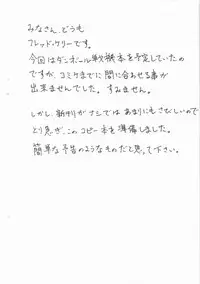 みなさん どうも
フレッド・ケリーです。
今回はダンボール戦機本を予定していたの
ですが、コミケまでに間に合わせる事が
出来ませんでした。すみません。
しかし、新刊がナシではあまりにもさびしいので
とり急ぎ、このコピー本を準備しました。
簡単な予告のようなものだと思って下さい。